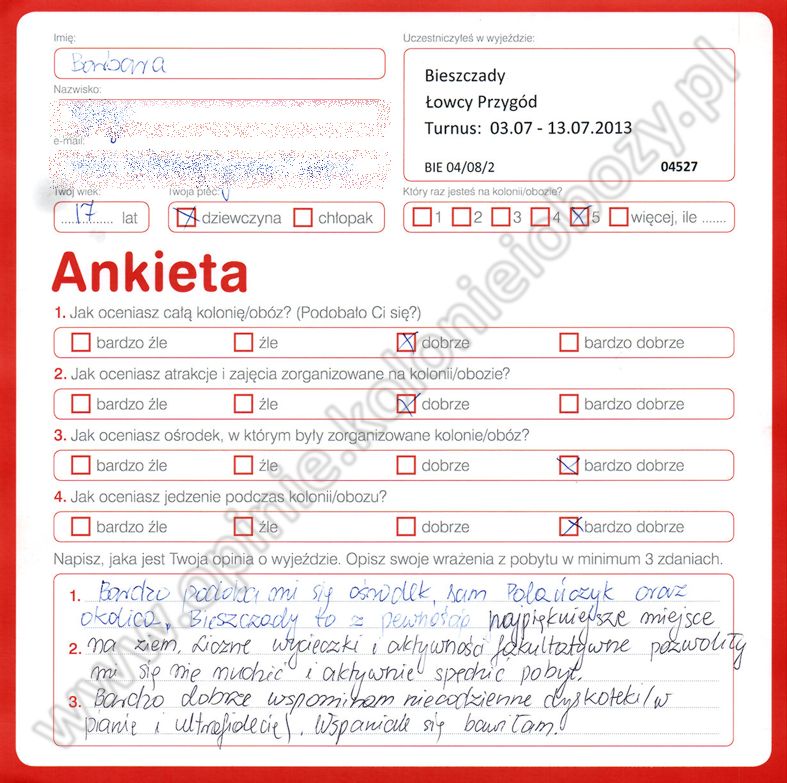 Imię:
Uczestniczyłeś w wyjeździe:
Barbara
Bieszczady
Łowcy Przygód
Turnus: 03.07 - 13.07.2013
BIE 04/08/2 04527
Nazwisko:
e-mail:
Twój wiek: Twoja płeć: Który raz jesteś na kolonii/obozie?
17 lat dziewczyna chłopak 1 2 3 4 5 więcej, ile .......
Ankieta
1. Jak oceniasz całą kolonię/obóz? (Podobało Ci się?)
bardzo źle źle dobrze bardzo dobrze
2. Jak oceniasz atrakcje i zajęcia zorganizowane na kolonii/obozie?
bardzo źle źle dobrze bardzo dobrze
3. Jak oceniasz ośrodek, w którym były zorganizowane kolonie/obóz?
bardzo źle źle dobrze bardzo dobrze
4. Jak oceniasz jedzenie podczas kolonii/obozu?
bardzo źle źle dobrze bardzo dobrze
Napisz, jaka jest Twoja opinia o wyjeździe. Opisz swoje wrażenia z pobytu w minimum 3 zdaniach.
1. Bardzo podoba mi się ośrodek, sam Polańczyk oraz
okolica, Bieszczady to z pewnością najpiękniejsze miejsce
2. na ziemi, Liczne wycieczki i aktywności fakultatywne pozwoliły
mi się nie nudzić i aktywnie spędzić pobyt.
3. Bardzo dobrze wspominam niecodzienne dyskoteki (w
pianie i ultrafiolecie). Wspaniale się bawiłam.
www.opinie.kolonieiobozy.pl